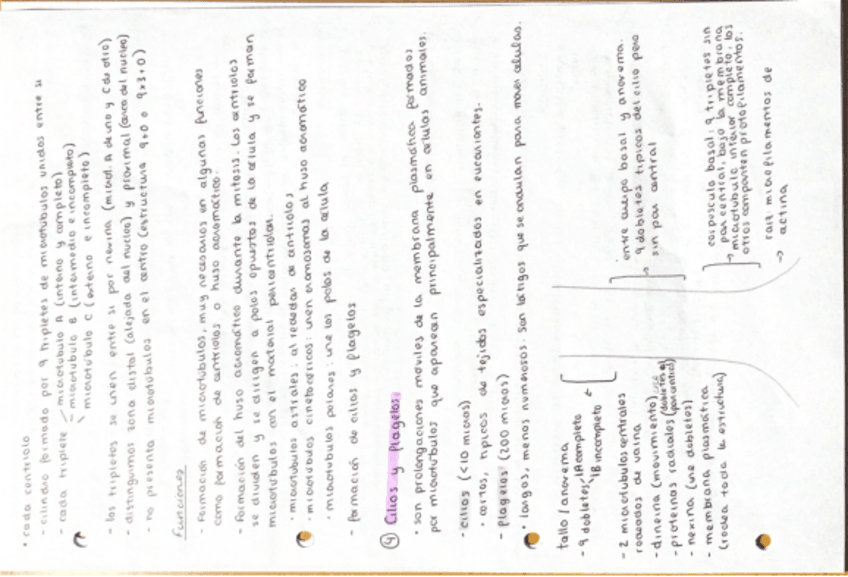 • cada centriolo
- cilindro formado por 9 tripletes de microtúbulos unidos entre sí
- cada triplete microtúbulo A (interno y completo)
microtúbulo B (intermedio e incompleto)
microtúbulo C (externo e incompleto)
- los tripletes se unen entre sí por nexina (microt. A de uno y C de otro)
- distinguimos zona distal (alejada del núcleo) y proximal (cerca del núcleo)
- no presenta microtúbulos en el centro (estructura 9+0 o 9x3+0)
Funciones
- Formación de microtúbulos, muy necesarios en algunas funciones
como formación de centriolos o huso acromático.
- Formación del huso acromático durante la mitosis. Los centriolos
se dividen y se dirigen a polos opuestos de la célula y se forman
microtúbulos con el material pericentriolar.
• microtúbulos astrales: alrededor de centriolos
• microtúbulos cinetocóricos: unen cromosomas al huso acromático
• microtúbulos polares: une los polos de la célula
- formación de cilios y flagelos
④ Cilios y flagelos
• son prolongaciones móviles de la membrana plasmática formados
por microtúbulos que aparecen principalmente en células animales.
- cilios (<10 micras)
• cortos, típicos de tejidos especializados en eucariontes.
- flagelos (200 micras)
• largos, menos numerosos. Son látigos que se ondulan para mover células.
tallo / axonema
- 9 dobletes 1A completo
1B incompleto
- 2 microtúbulos centrales
rodeados de vaina
- dineína (movimiento)
- proteínas radiales
- nexina (une dobletes)
- membrana plasmática
(rodea toda la estructura)
entre cuerpo basal y axonema.
→ 9 dobletes típicos del cilio pero
sin par central
corpúsculo basal: 9 tripletes sin
par central, bajo la membrana
→ microtúbulo interior completo, los
otros comparten protofilamentos.
→ raíz: microfilamentos de
actina